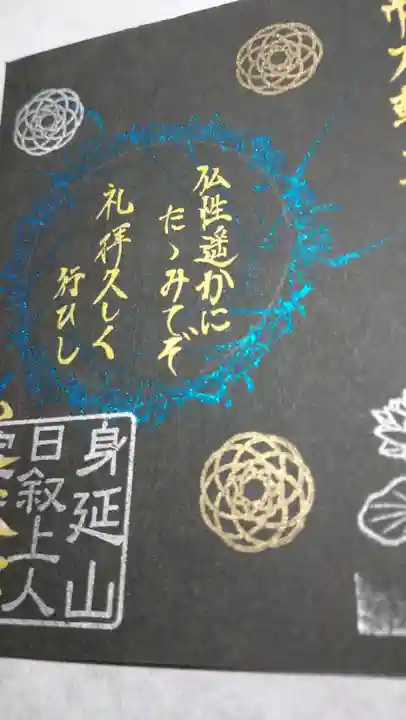 仏性遥かに
たゝみてぞ
礼拝久しく
行ひし
身延山
日叙上人